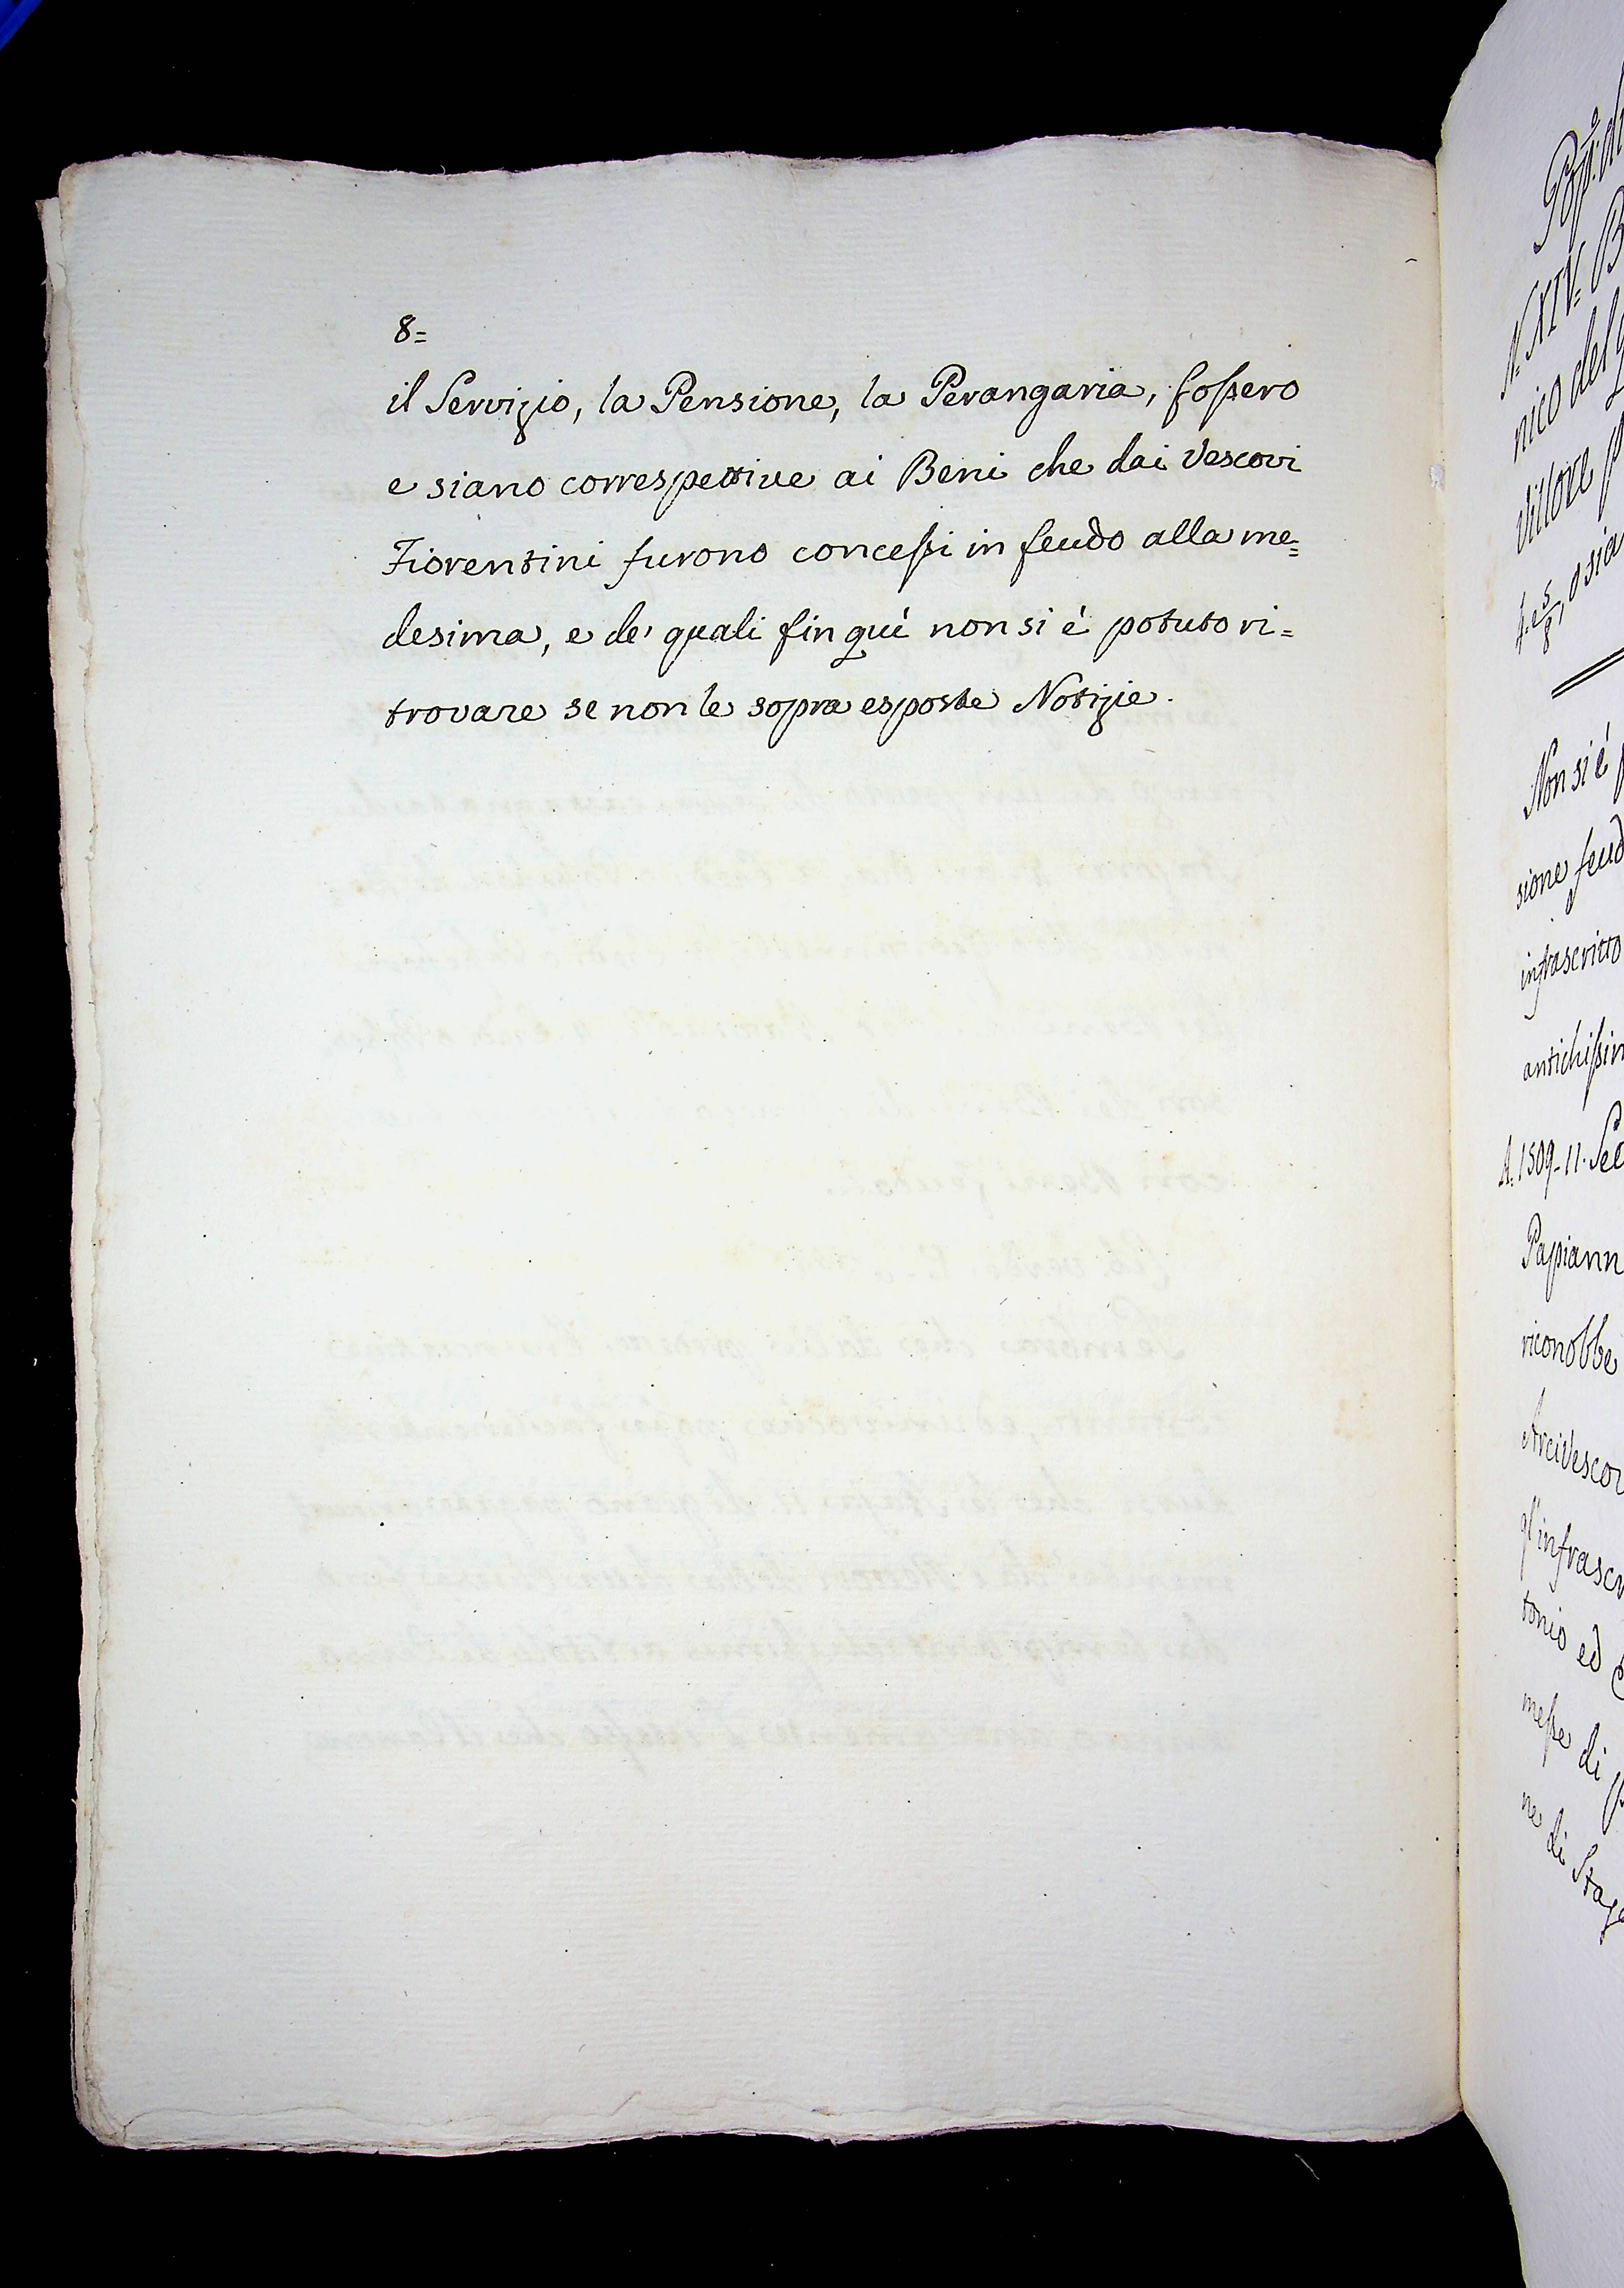 8=
il Servizio, la Pensione, la Perangaria, fossero
e siano correspettive ai Beni che dai Vescovi
Fiorentini furono concessi in feudo alla me=
desima, e de' quali fin quì non si è potuto ri=
trovare se non le sopra esposte Notizie.
N. XIV=
nico del
villore
o sia
Non si è
sione feud
infrascritto
antichissim
A. 1509-11. Se
Papiann
riconobbe
Arcivescov
gl'infrascr
tonio ed
messe di
ne di Stag